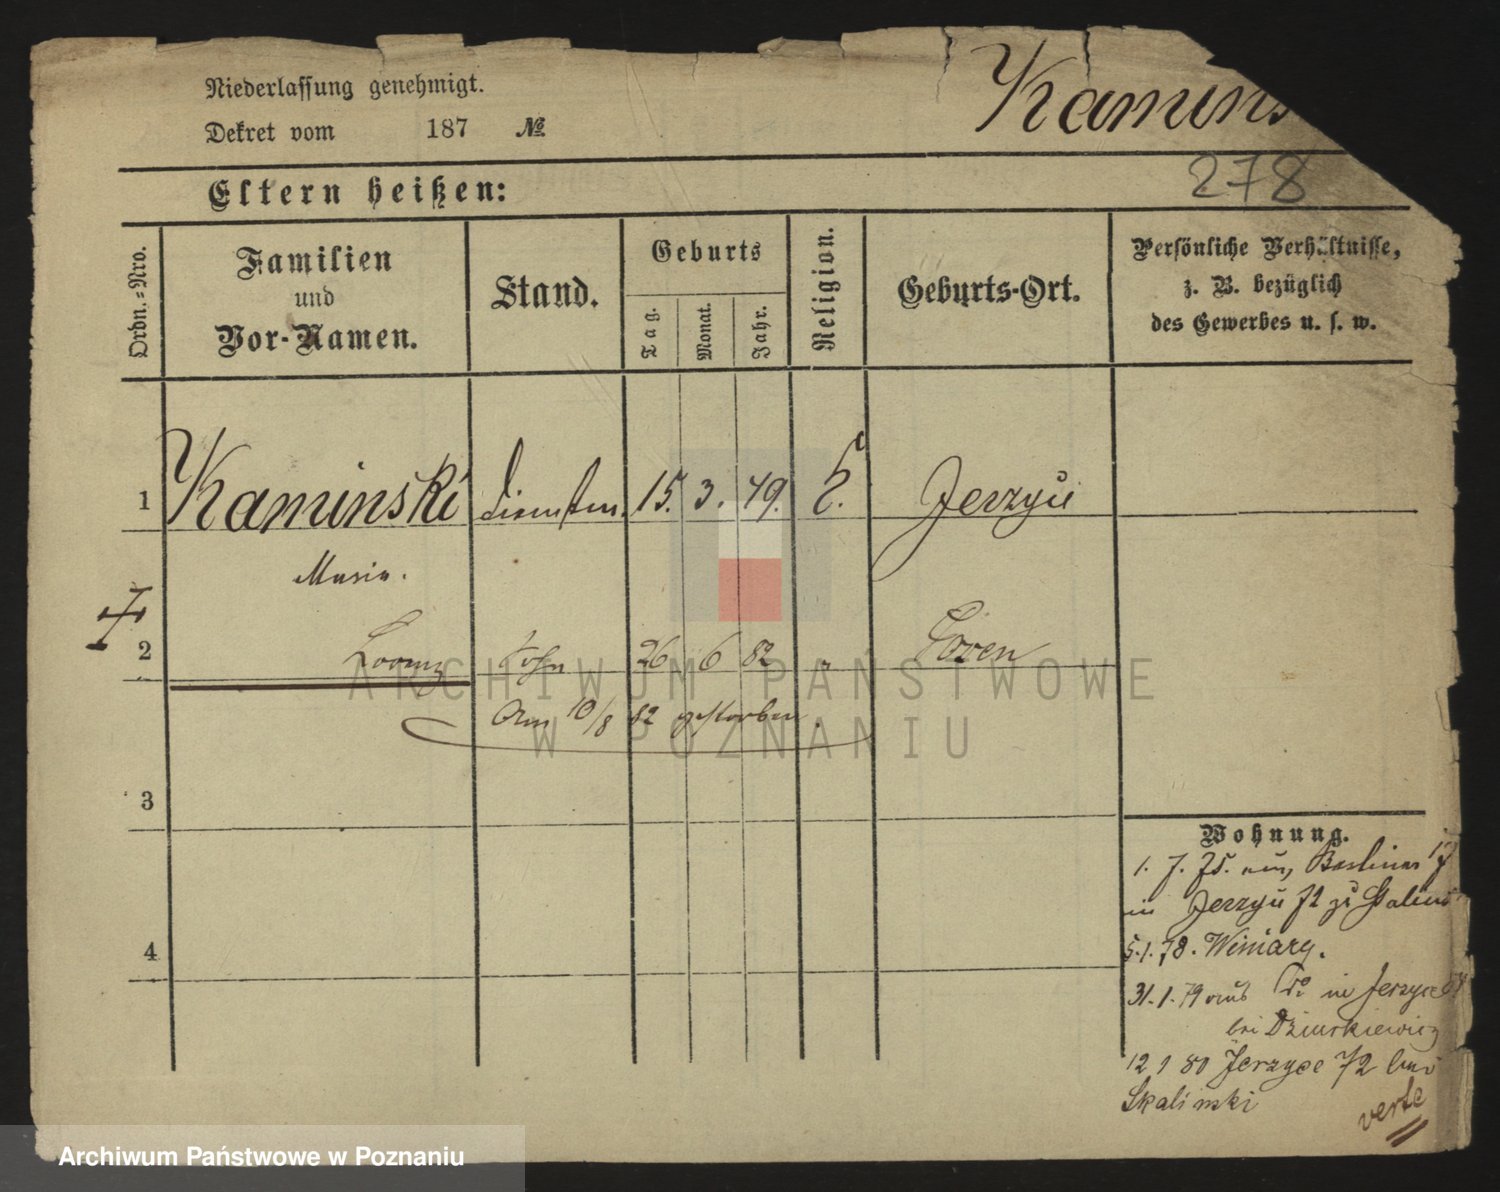 Niederlassung genehmigt.
Dekret vom 187 №
Kamins
278
Eltern heißen:
Ordn.-Nro.
Familien
und
Vor-Namen.
Stand.
Geburts
Tag.
Monat.
Jahr.
Religion.
Geburts-Ort.
Persönliche Verhältnisse,
z. B. bezüglich
des Gewerbes u. s. w.
1 Kaminski 15. 3. 49. Jerzyce
2 26 6 82 Posen
Am 10/8 82 gestorben.
3
4
Wohnung.
1. 7. 75. Berliner 17
in Jerzyce 72
5.1.78. Winiary.
31.1.79 in Jerzyce
bei
12 1 80 Jerzyce 72 bei
Skalinski
verte
ARCHIWUM PAŃSTWOWE
W POZNANIU
Archiwum Państwowe w Poznaniu